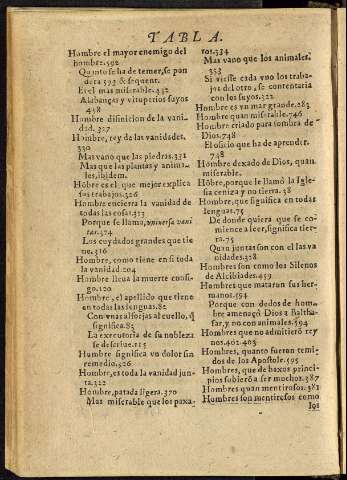 TABLA.
Hombre el mayor enemigo del
hombre.592
Quanto se ha de temer, se pon
dera 593 & sequent.
Es el mas miserable.332
Alabanças y vituperios suyos
458
Hombre difinicion de la vani-
dad.327
Hombre, rey de las vanidades.
330
Mas vano que las piedras.331
Mas que las plantas y anima-
les, ibidem.
Hõbre es el que mejor explica
sus trabajos.326
Hombre encierra la vanidad de
todas las cosas.313
Porque se llama, vniversa vani
tas.374
Los cuydados grandes que tie
ne.316
Hombre, como tiene en si toda
la vanidad.204
Hombre lleua la muerte consi-
go.120
Hombre, el apellido que tiene
en todas las lenguas.82
Con vnas alforjas al cuello, q̃
significa.83
La executoria de su nobleza
se descriue.115
Hombre significa vn dolor sin
remedio.326
Hombre, es toda la vanidad jun-
ta.322
Hombre, patada ligera.370
Mas miserable que los paxa-
ros.334
Mas vano que los animales.
353
Si viesse cada vno los traba-
jos del otro, se contentaria
con los suyos.322
Hombre es vn mar grande.283
Hombre quan miserable.746
Hombre criado para sombra de
Dios.748
El oficio que ha de aprender.
748
Hombre dexado de Dios, quan
miserable.
Hõbre, porque le llamò la Igle
sia ceniza y no tierra.38
Hombre, que significa en todas
lenguas.75
De donde quiera que se co-
mience a leer, significa tier-
ra.75
Quan juntas son con el las va
nidades.328
Hombres son como los Silenos
de Alcibiades.459
Hombres que mataran sus her
manos.594
Porque con dedos de hom-
bre amenaçò Dios a Baltha-
sar, y no con animales.594
Hombres que no admitierõ rey
nos.402.403
Hombres, quanto fueron temi-
dos de los Apostoles.595
Hombres, que de baxos princi-
pios subierõ a ser muchos.387
Hombres quan mentirosos.381
Hombres son mentirosos como
los